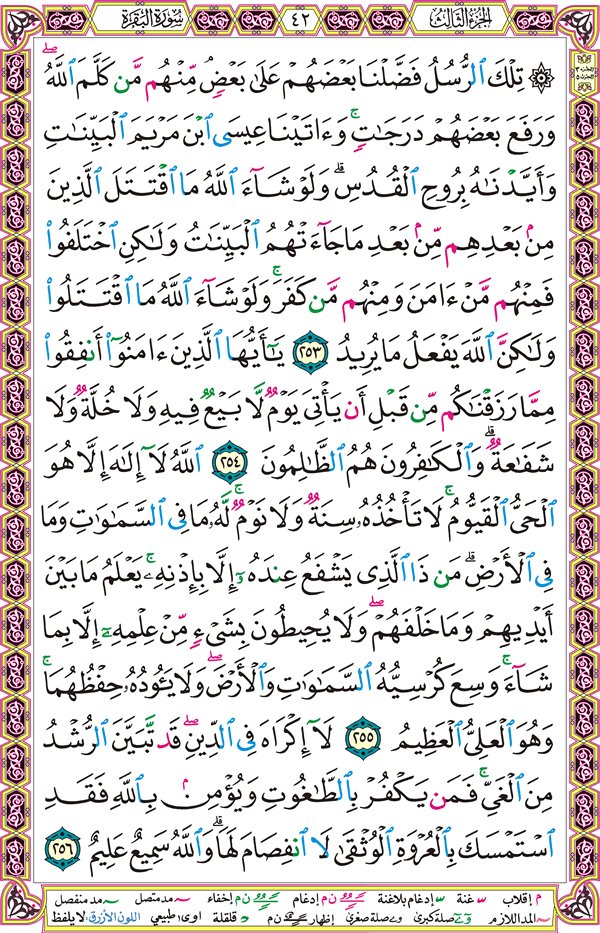 الجزء الثالث
٤٢
سورة البقرة
۞ تِلْكَ ٱلرُّسُلُ فَضَّلْنَا بَعْضَهُمْ عَلَىٰ بَعْضٍ مِّنْهُم مَّن كَلَّمَ ٱللَّهُۖ
وَرَفَعَ بَعْضَهُمْ دَرَجَٰتٍۚ وَءَاتَيْنَا عِيسَى ٱبْنَ مَرْيَمَ ٱلْبَيِّنَٰتِ
وَأَيَّدْنَٰهُ بِرُوحِ ٱلْقُدُسِۗ وَلَوْ شَآءَ ٱللَّهُ مَا ٱقْتَتَلَ ٱلَّذِينَ
مِنۢ بَعْدِهِم مِّنۢ بَعْدِ مَا جَآءَتْهُمُ ٱلْبَيِّنَٰتُ وَلَٰكِنِ ٱخْتَلَفُوا۟
فَمِنْهُم مَّنْ ءَامَنَ وَمِنْهُم مَّن كَفَرَۚ وَلَوْ شَآءَ ٱللَّهُ مَا ٱقْتَتَلُوا۟
وَلَٰكِنَّ ٱللَّهَ يَفْعَلُ مَا يُرِيدُ ٢٥٣ يَٰٓأَيُّهَا ٱلَّذِينَ ءَامَنُوٓا۟ أَنفِقُوا۟
مِمَّا رَزَقْنَٰكُم مِّن قَبْلِ أَن يَأْتِىَ يَوْمٌ لَّا بَيْعٌ فِيهِ وَلَا خُلَّةٌ وَلَا
شَفَٰعَةٌۗ وَٱلْكَٰفِرُونَ هُمُ ٱلظَّٰلِمُونَ ٢٥٤ ٱللَّهُ لَآ إِلَٰهَ إِلَّا هُوَ
ٱلْحَىُّ ٱلْقَيُّومُۚ لَا تَأْخُذُهُۥ سِنَةٌ وَلَا نَوْمٌۚ لَّهُۥ مَا فِى ٱلسَّمَٰوَٰتِ وَمَا
فِى ٱلْأَرْضِۗ مَن ذَا ٱلَّذِى يَشْفَعُ عِندَهُۥٓ إِلَّا بِإِذْنِهِۦۚ يَعْلَمُ مَا بَيْنَ
أَيْدِيهِمْ وَمَا خَلْفَهُمْۖ وَلَا يُحِيطُونَ بِشَىْءٍ مِّنْ عِلْمِهِۦٓ إِلَّا بِمَا
شَآءَۚ وَسِعَ كُرْسِيُّهُ ٱلسَّمَٰوَٰتِ وَٱلْأَرْضَۖ وَلَا يَـُٔودُهُۥ حِفْظُهُمَاۚ
وَهُوَ ٱلْعَلِىُّ ٱلْعَظِيمُ ٢٥٥ لَآ إِكْرَاهَ فِى ٱلدِّينِۖ قَد تَّبَيَّنَ ٱلرُّشْدُ
مِنَ ٱلْغَىِّۚ فَمَن يَكْفُرْ بِٱلطَّٰغُوتِ وَيُؤْمِنۢ بِٱللَّهِ فَقَدِ
ٱسْتَمْسَكَ بِٱلْعُرْوَةِ ٱلْوُثْقَىٰ لَا ٱنفِصَامَ لَهَاۗ وَٱللَّهُ سَمِيعٌ عَلِيمٌ ٢٥٦
م إقلاب غنة إدغام بلاغنة ن م إدغام ن م إخفاء مد متصل مد منفصل
المد اللازم صلة كبرى صلة صغرى إظهار ن م قلقلة اوى طبيعي اللون الأزرق: لا يلفظ